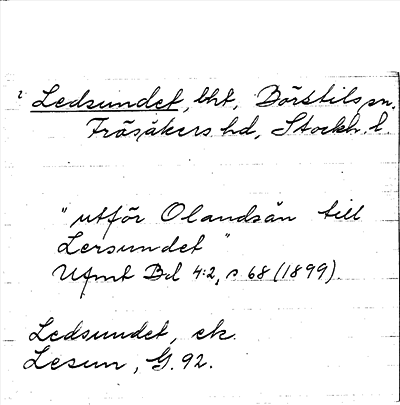 Ledsundet, bht, Börstils sn.
Frösåkers hd, Stockh. l.
"utför Olandsån till
Lersundet"
Ufmt Bd 4:2, s 68 (1899).
Ledsundet, ek.
Lesun, G. 92.